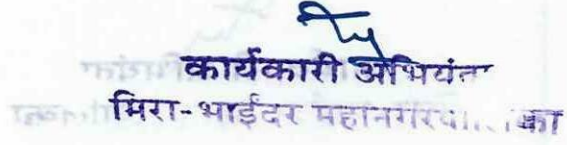 कार्यकारी अभियंता
मिरा-भाईंदर महानगरपालिका